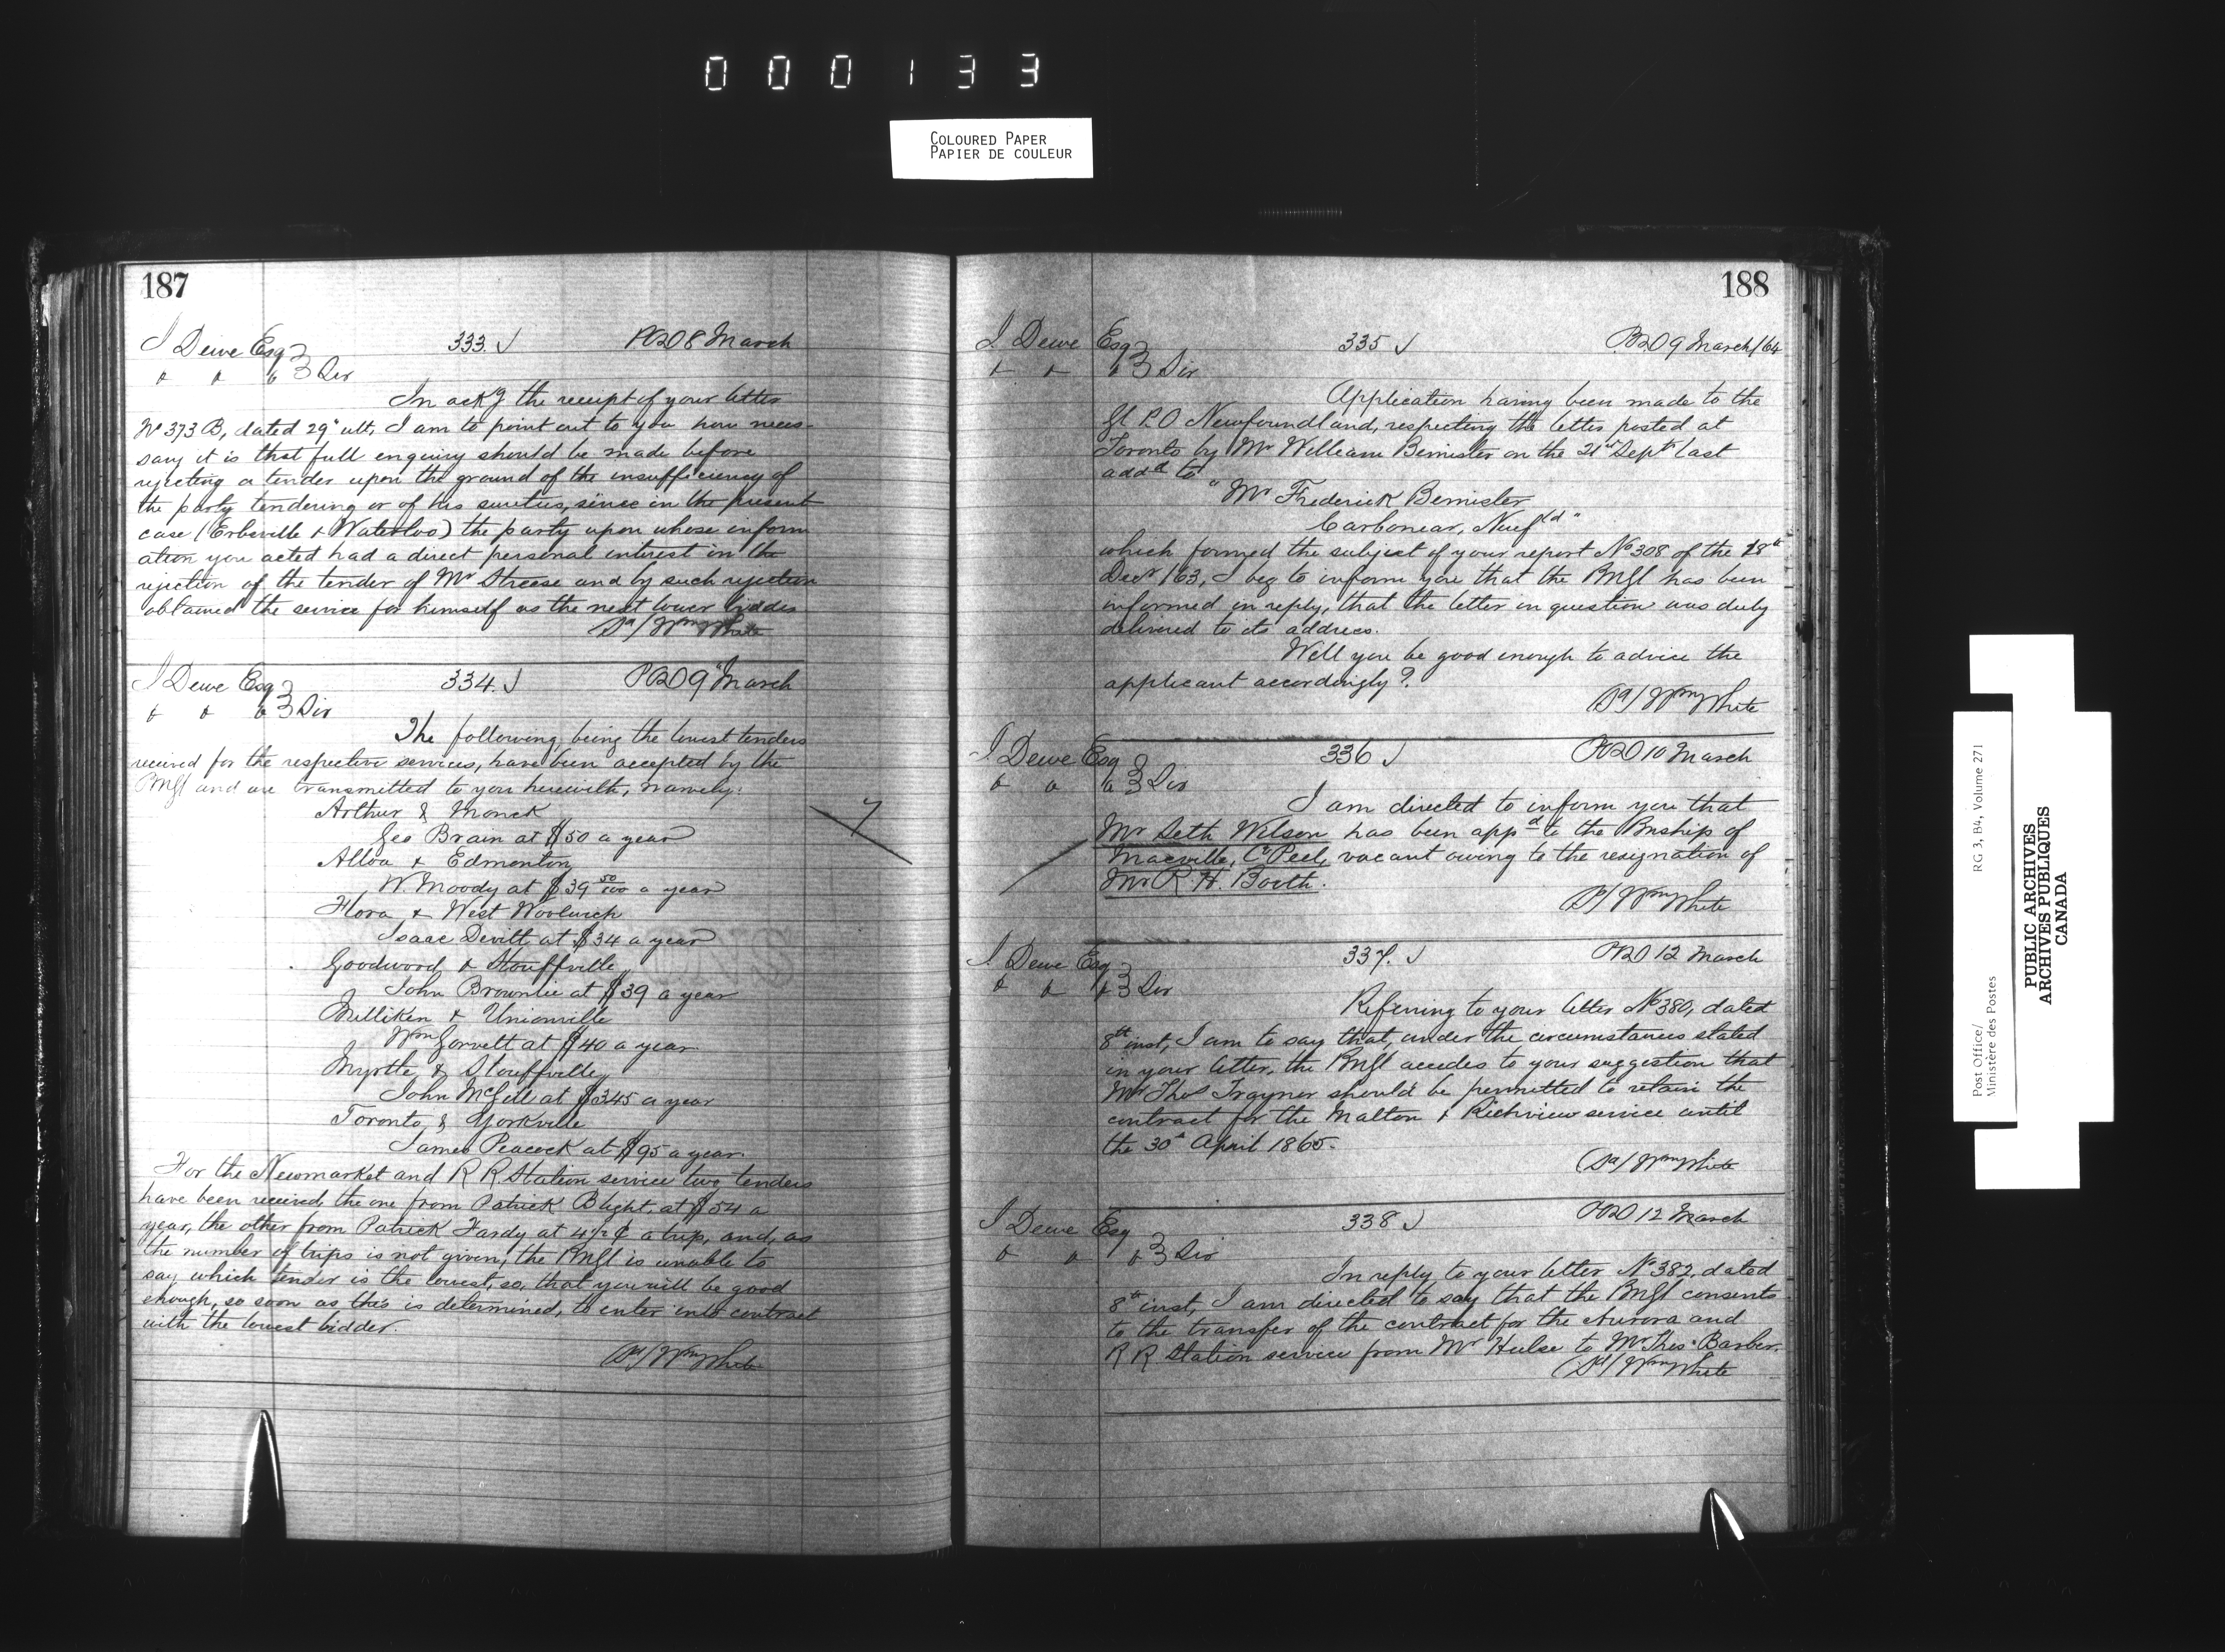 000133
COLOURED PAPER
PAPIER DE COULEUR
187
J Dewe Esq 333. J POD 8 March
& & & Sir
In ackg the receipt of your letter
No 373 B, dated 29" ult, I am to point out to you how neces-
sary it is that full enquiry should be made before
rejecting a tender upon the ground of the insufficiency of
the party tendering or of his sureties, since in the present
case (Erbsville & Waterloo) the party upon whose inform
ation you acted had a direct personal interest in the
rejection of the tender of Mr Streese and by such rejection
obtained the service for himself as the next lower bidder
Sd/ Wm White
J Dewe Esq 334. J POD 9" March
& & & Sir
The following being the lowest tenders
received for the respective services, have been accepted by the
PMGl and are transmitted to you herewith, namely:
Arthur & Monck
Geo Brain at $50 a year
Alloa & Edmonton
W. Moody at $39 50/100 a year
Flora & West Woolwich
Isaac Devitt at $34 a year
Goodwood & Stouffville
John Brownlie at $39 a year
Milliken & Unionville
Wm Gorvett at $40 a year
Myrtle & Stouffville
John McGill at $345 a year
Toronto & Yorkville
James Peacock at $95 a year.
For the Newmarket and R R Station service two tenders
have been received, the one from Patrick Blight at $54 a
year, the other from Patrick Hardy at 4½ ¢ a trip, and, as
the number of trips is not given, the PMGl is unable to
say which tender is the lowest, so, that you will be good
enough, so soon as this is determined, to enter into contract
with the lowest bidder.
Sd/ Wm White
188
J. Dewe Esq 335 J POD 9 March/64
& & & Sir
Application having been made to the
Gl P.O Newfoundland, respecting the letter posted at
Toronto by Mr William Bemister on the 21st Sept last
addd to
"Mr Frederick Bemister
Carbonear, Newfld"
which formed the subject of your report No 308 of the 18th
Decr /63, I beg to inform you that the PMGl has been
informed in reply, that the letter in question was duly
delivered to its address.
Will you be good enough to advice the
applicant accordingly?
(Sd/ Wm White
J Dewe Esq 336 J POD 10 March
& & & Sir
I am directed to inform you that
Mr Seth Wilson has been appd to the Pmship of
Macville, Co Peel, vacant owing to the resignation of
Mr R. H. Booth.
Sd/ Wm White
J. Dewe Esq 337. J POD 12 March
& & & Sir
Referring to your letter No 380, dated
8th inst, I am to say that, under the circumstances stated
in your letter, the PMGl accedes to your suggestion that
Mr Thos Traynor should be permitted to retain the
contract for the Malton & Richview service until
the 30th April 1865.
(Sd/ Wm White
J Dewe Esq 338 J POD 12 March
& & & Sir
In reply to your letter No 382, dated
8th inst, I am directed to say that the PMGl consents
to the transfer of the contract for the Aurora and
R R Station service from Mr Hulse to Mr Thos Barber.
(Sd/ Wm White
Post Office/
Ministère des Postes
RG 3, B4, Volume 271
PUBLIC ARCHIVES
ARCHIVES PUBLIQUES
CANADA